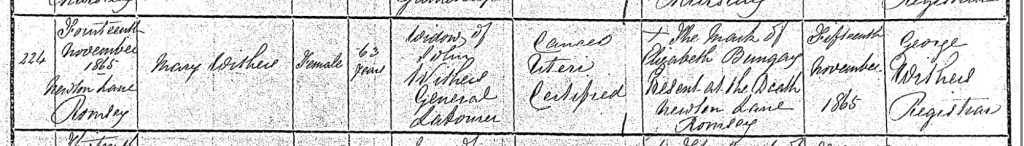 224
Fourteenth
November
1865
Newton Lane
Romsey
Mary Withers
Female
63
years
Widow of
John
Withers
General
Labourer
Cancer
Uteri
Certified
X The Mark of
Elizabeth Bungay
Present at the Death
Newton Lane
Romsey
Fifteenth
November
1865
George
Withers
Registrar